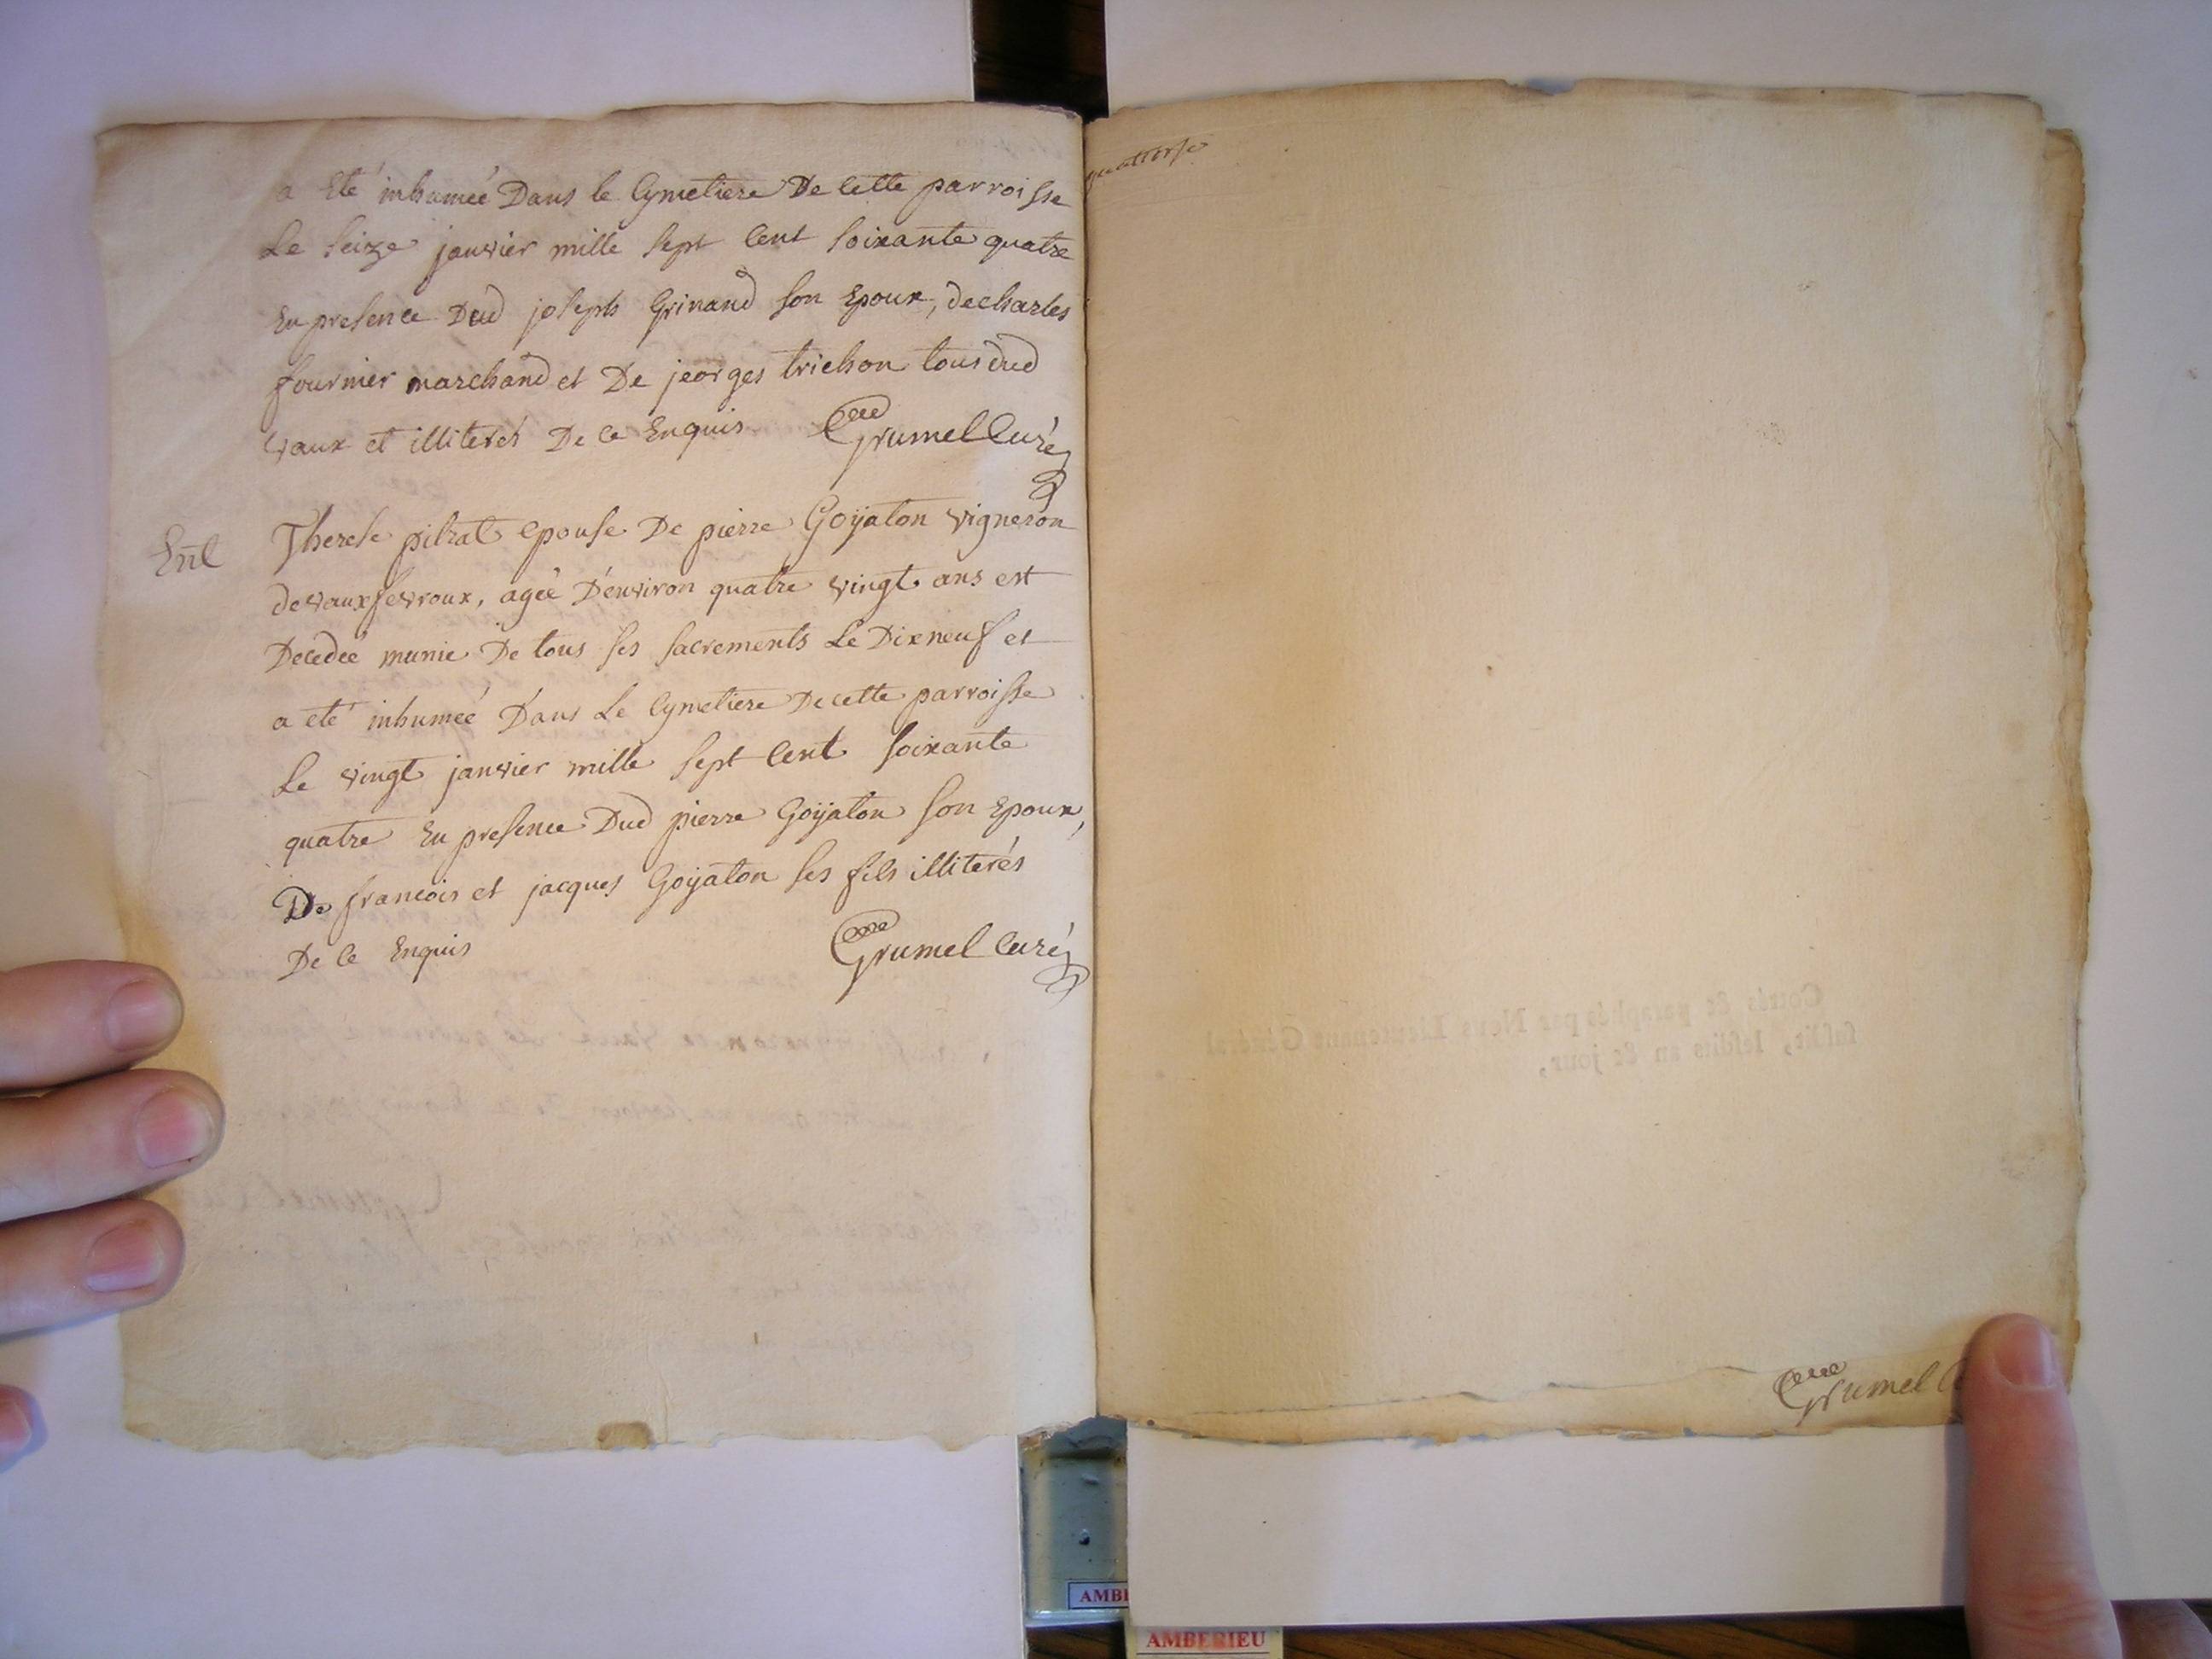 a Eté inhumeé Dans le Cymetiere De Cette parroisse
Le Seize janvier mille Sept Cent Soixante quatre
En presence Dud joseph Grinand son Epoux, de charles
fournier marchand et De jeorges trichon tous dud
vaux et illiterés De Ce Enquis Grumel Curé
Ent
Therese pilrat epouse De pierre Goÿaton vigneron
de vauxfevroux, ageé D'environ quatre vingt ans est
Decedeé munie De tous ses sacrements Le Dixneuf et
a eté inhumeé Dans Le Cymetiere De cette parroisse
Le vingt janvier mille Sept Cent Soixante
quatre En presence Dud pierre Goÿaton son Epoux,
De francois et jacques Goÿaton ses fils illiterés
De Ce Enquis Grumel Curé
quattorse
Cottés & paraphés par Nous Lieutenant Général
susdit, lesdits an & jour,
Grumel C
AMBE
AMBERIEU